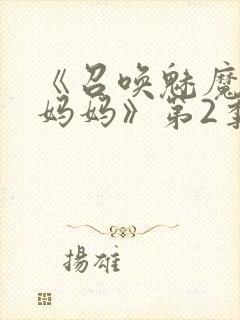 《召唤魅魔
妈妈》第2季
揚雄